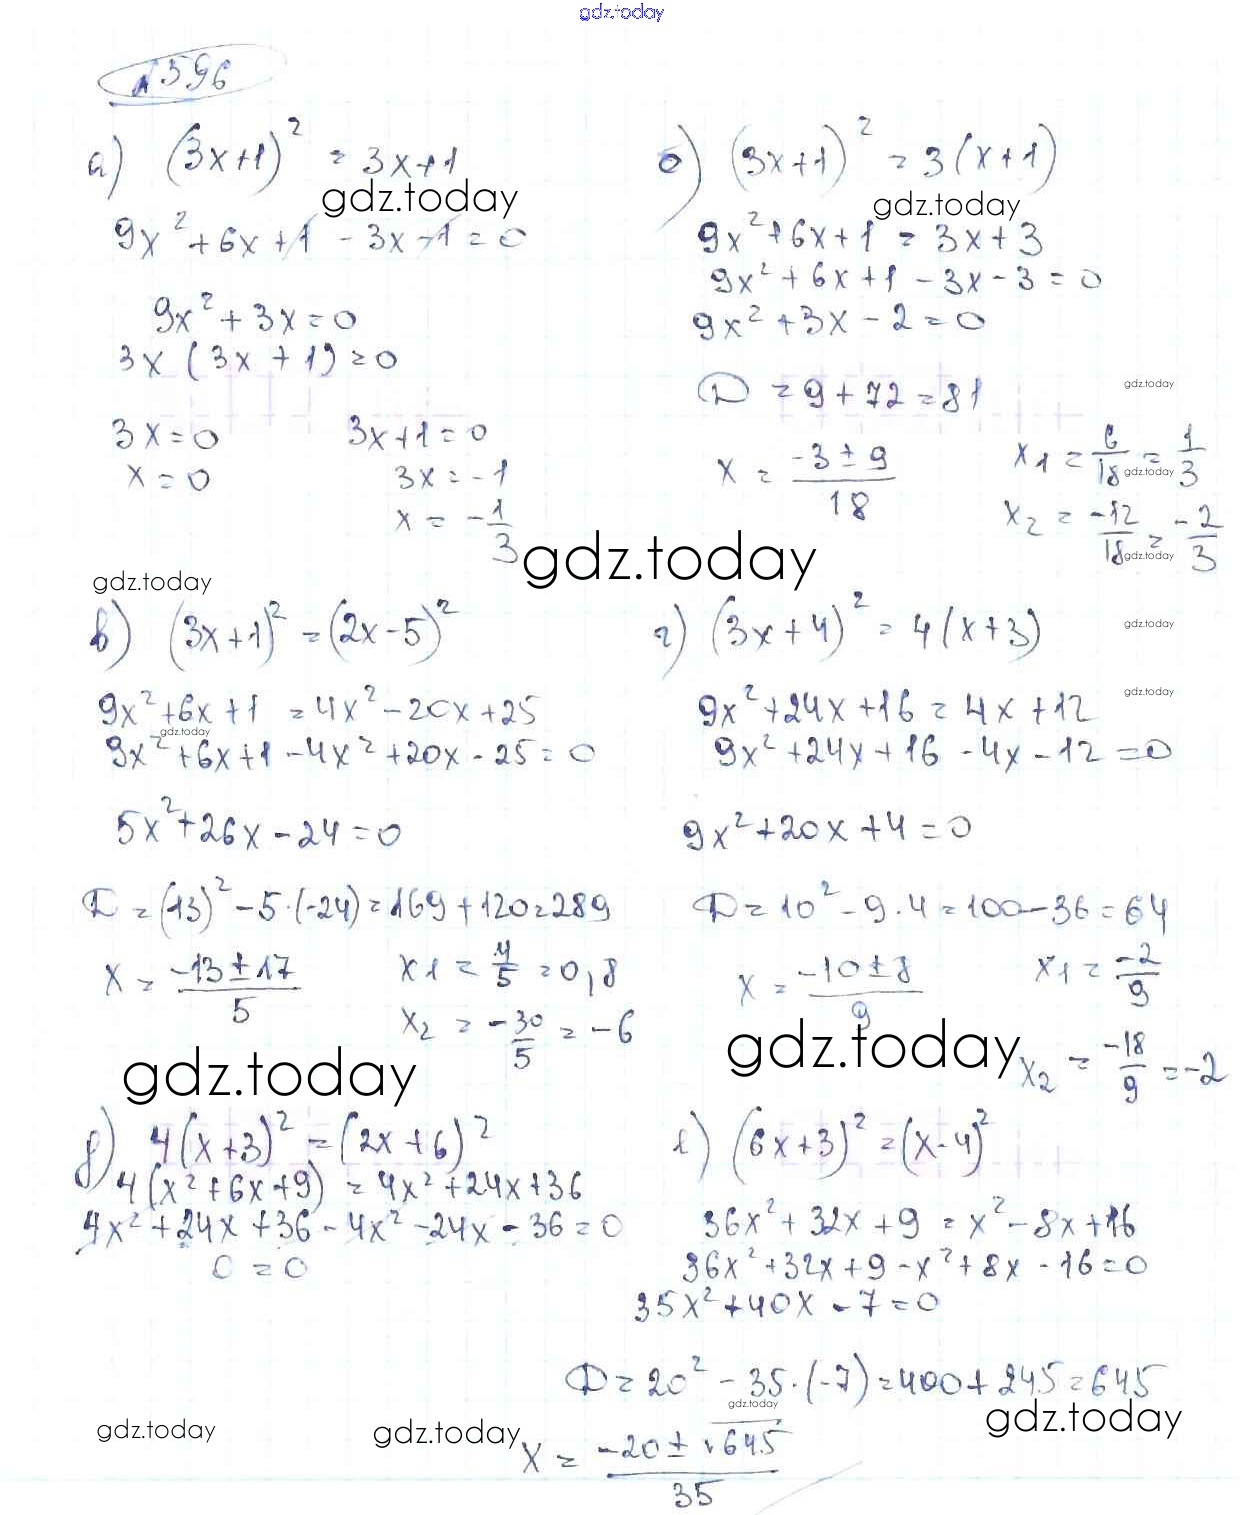 gdz.today
№596
а) (3x+1)² = 3x+1
gdz.today
9x²+6x+1 - 3x-1=0
9x²+3x=0
3x(3x+1)=0
3x=0 3x+1=0
x=0 3x=-1
x=-1/3
б) (3x+1)² = 3(x+1)
gdz.today
9x²+6x+1 = 3x+3
9x²+6x+1-3x-3=0
9x²+3x-2=0
gdz.today
D=9+72=81
x = (-3±9)/18 x1 = 6/18 = 1/3
gdz.today
x2 = -12/18 = -2/3
gdz.today
gdz.today
gdz.today
в) (3x+1)² = (2x-5)²
9x²+6x+1 = 4x²-20x+25
gdz.today
9x²+6x+1-4x²+20x-25=0
5x²+26x-24=0
D=(13)²-5·(-24)=169+120=289
x = (-13±17)/5 x1 = 4/5 = 0,8
x2 = -30/5 = -6
gdz.today
г) (3x+4)² = 4(x+3)
gdz.today
gdz.today
9x²+24x+16=4x+12
9x²+24x+16-4x-12=0
9x²+20x+4=0
D=10²-9·4=100-36=64
x = (-10±8)/9 x1 = -2/9
gdz.today
x2 = -18/9 = -2
д) 4(x+3)² = (2x+6)²
4(x²+6x+9) = 4x²+24x+36
4x²+24x+36-4x²-24x-36=0
0=0
е) (6x+3)² = (x-4)²
36x²+32x+9 = x²-8x+16
36x²+32x+9-x²+8x-16=0
35x²+40x-7=0
D=20²-35·(-7)=400+245=645
gdz.today
gdz.today
gdz.today
gdz.today
x = (-20±√645)/35